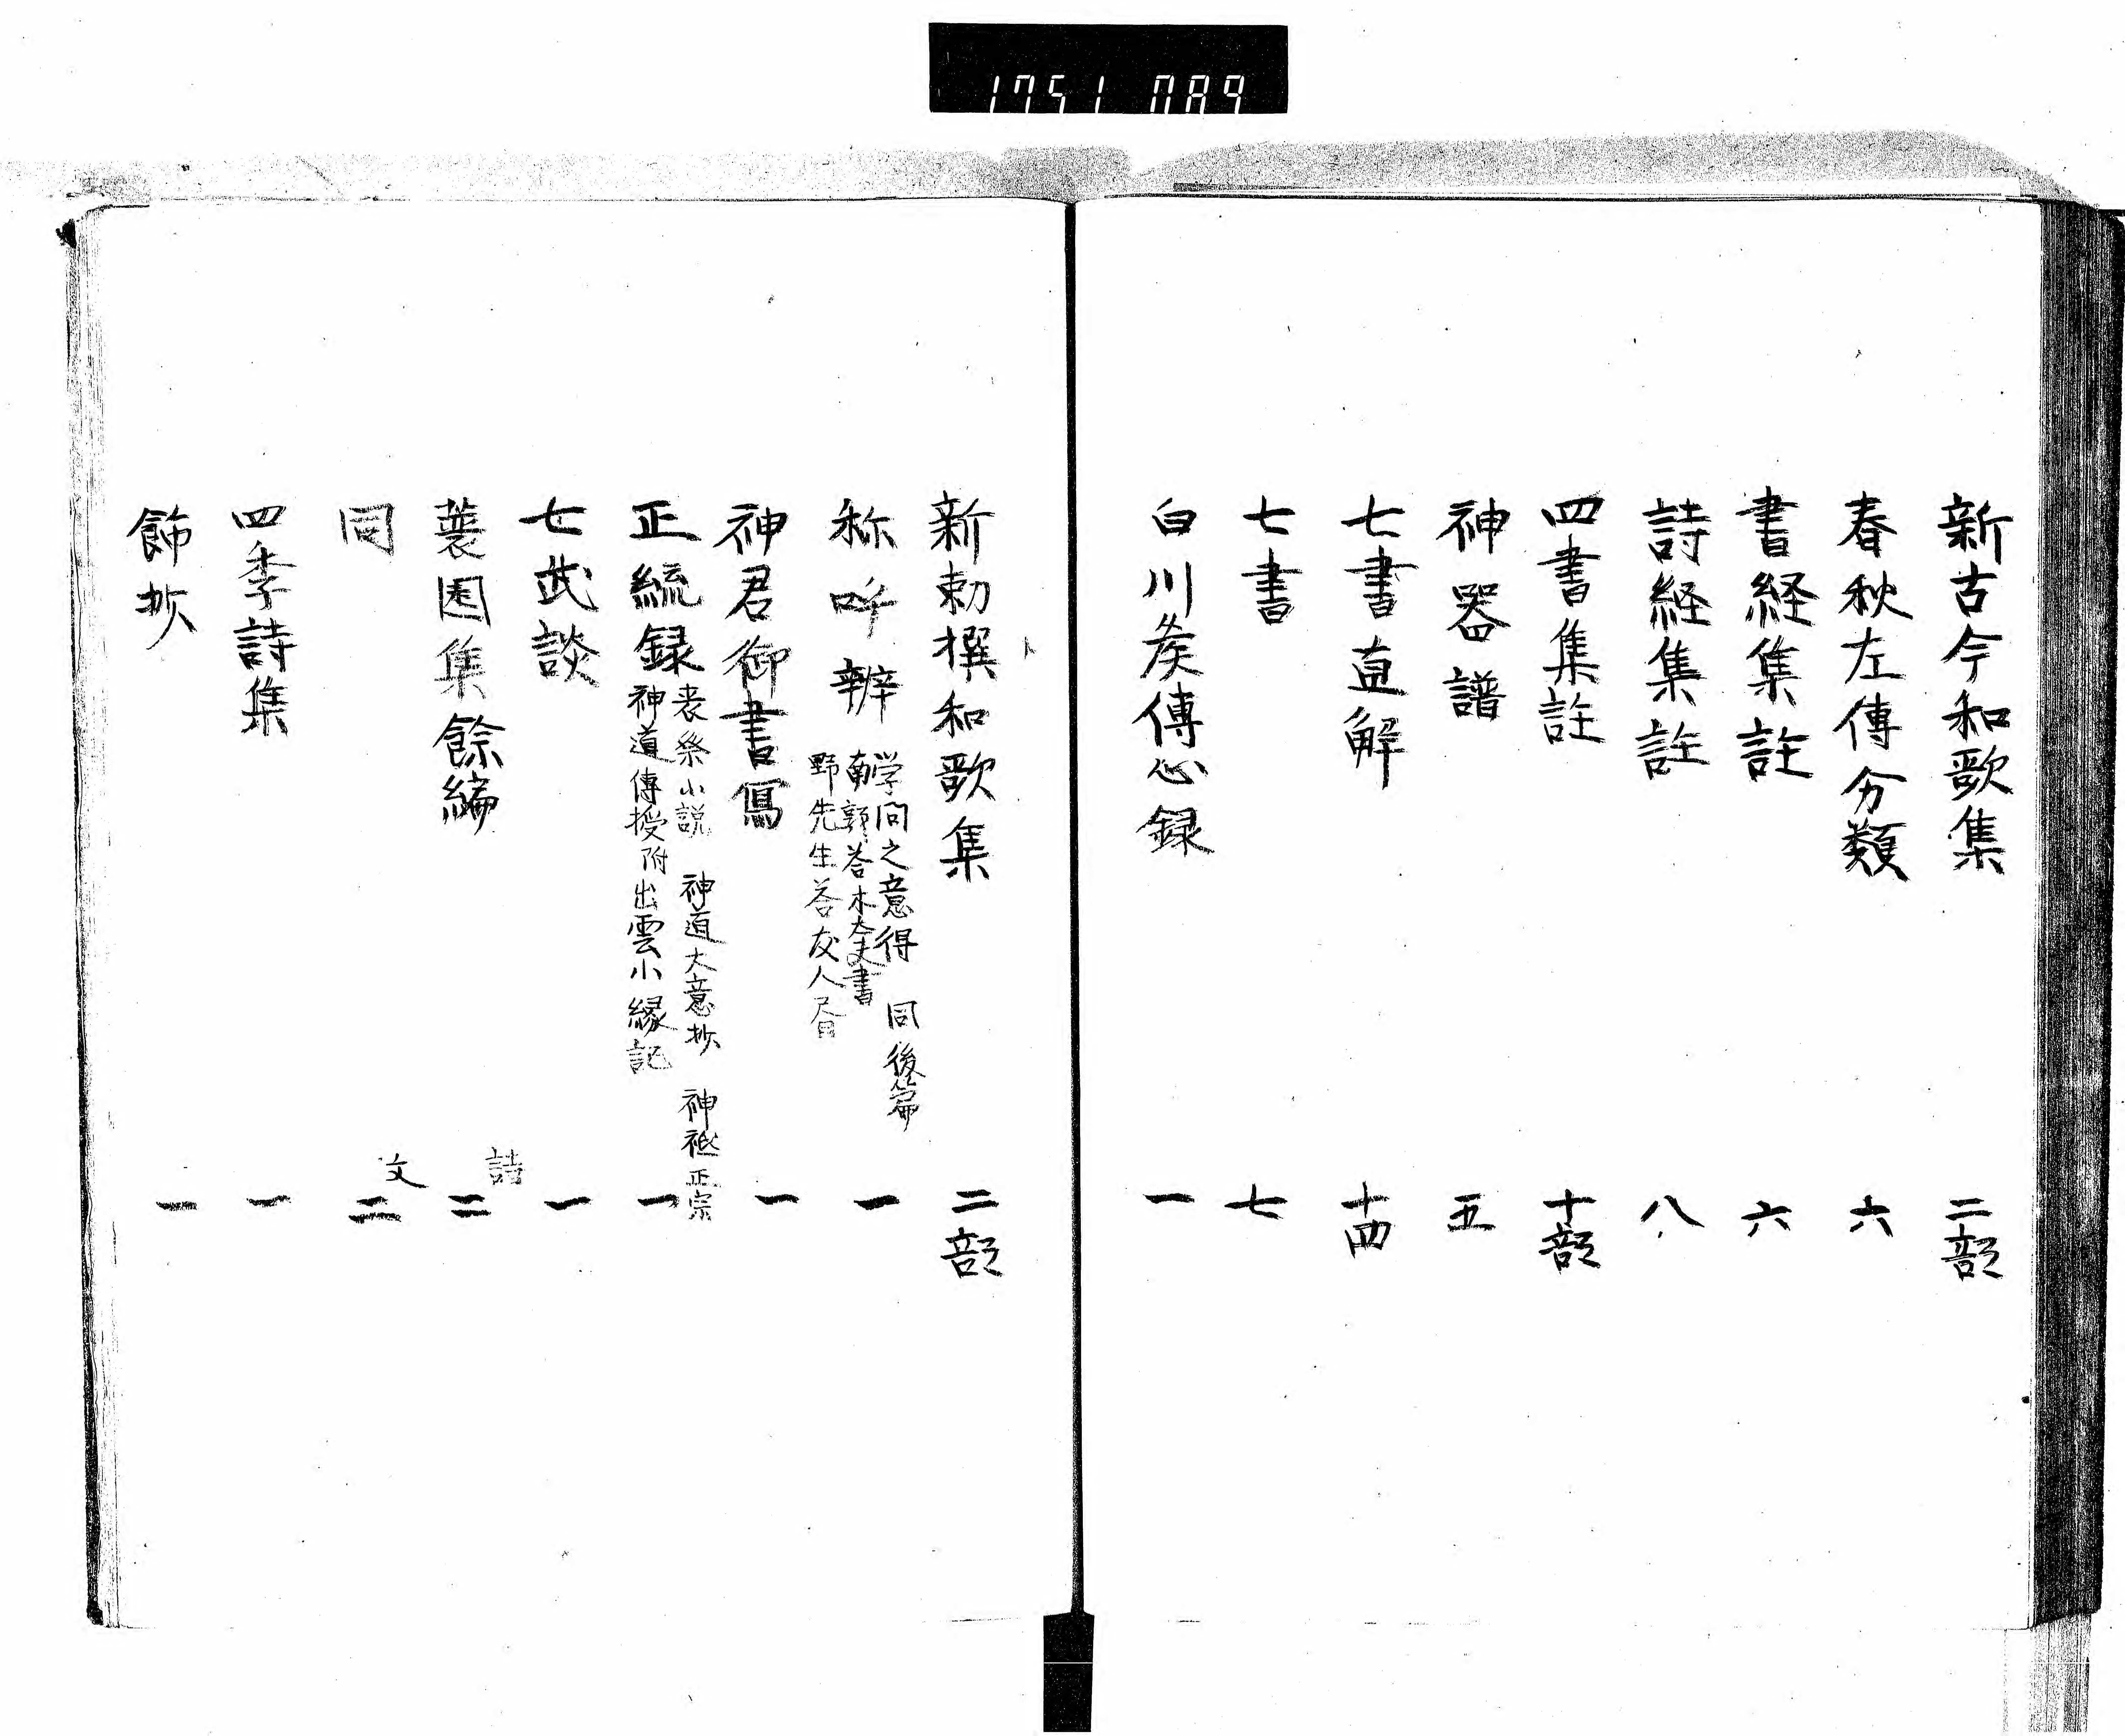 1751 089
新古今和歌集 二部
春秋左傳分類 六
書経集註 六
詩経集註 八
四書集註 十部
神器譜 五
七書直解 十四
七書 七
白川侯傳心録 一
新勅撰和歌集 二部
称呼辨 学問之意得 同後篇
南郭答木大夫書
野先生答友人書 一
神君御書寫 一
正統録 喪祭小説 神道大意抄 神祇正宗
神道傳授附出雲小縁記 一
七武談 一
蓑園集餘編 詩 二
同 文 二
四季詩集 一
飾抄 一